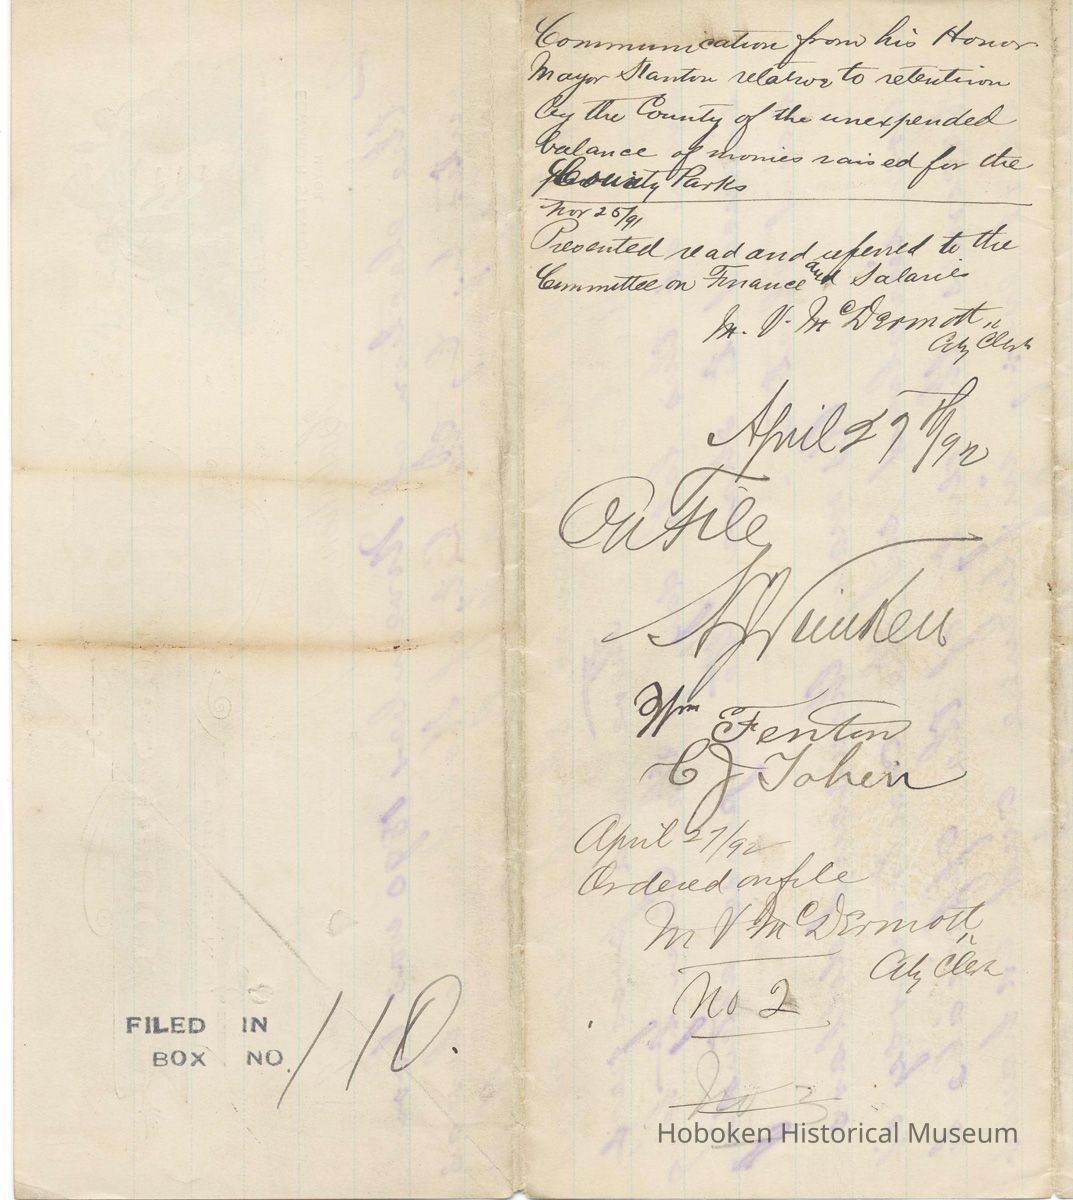 Communication from his Honor
Mayor Stanton relative to retention
by the County of the unexpended
balance of monies raised for the
County Parks
Nov 25/91
Presented read and referred to the
Committee on Finance and Salaries
M. V. McDermott
City Clerk
April 27th/92
On File
Wm Fenton
April 27/92
Ordered on file
M V McDermott
City Clerk
No 2
No 3
FILED IN
BOX NO. 110.
Hoboken Historical Museum